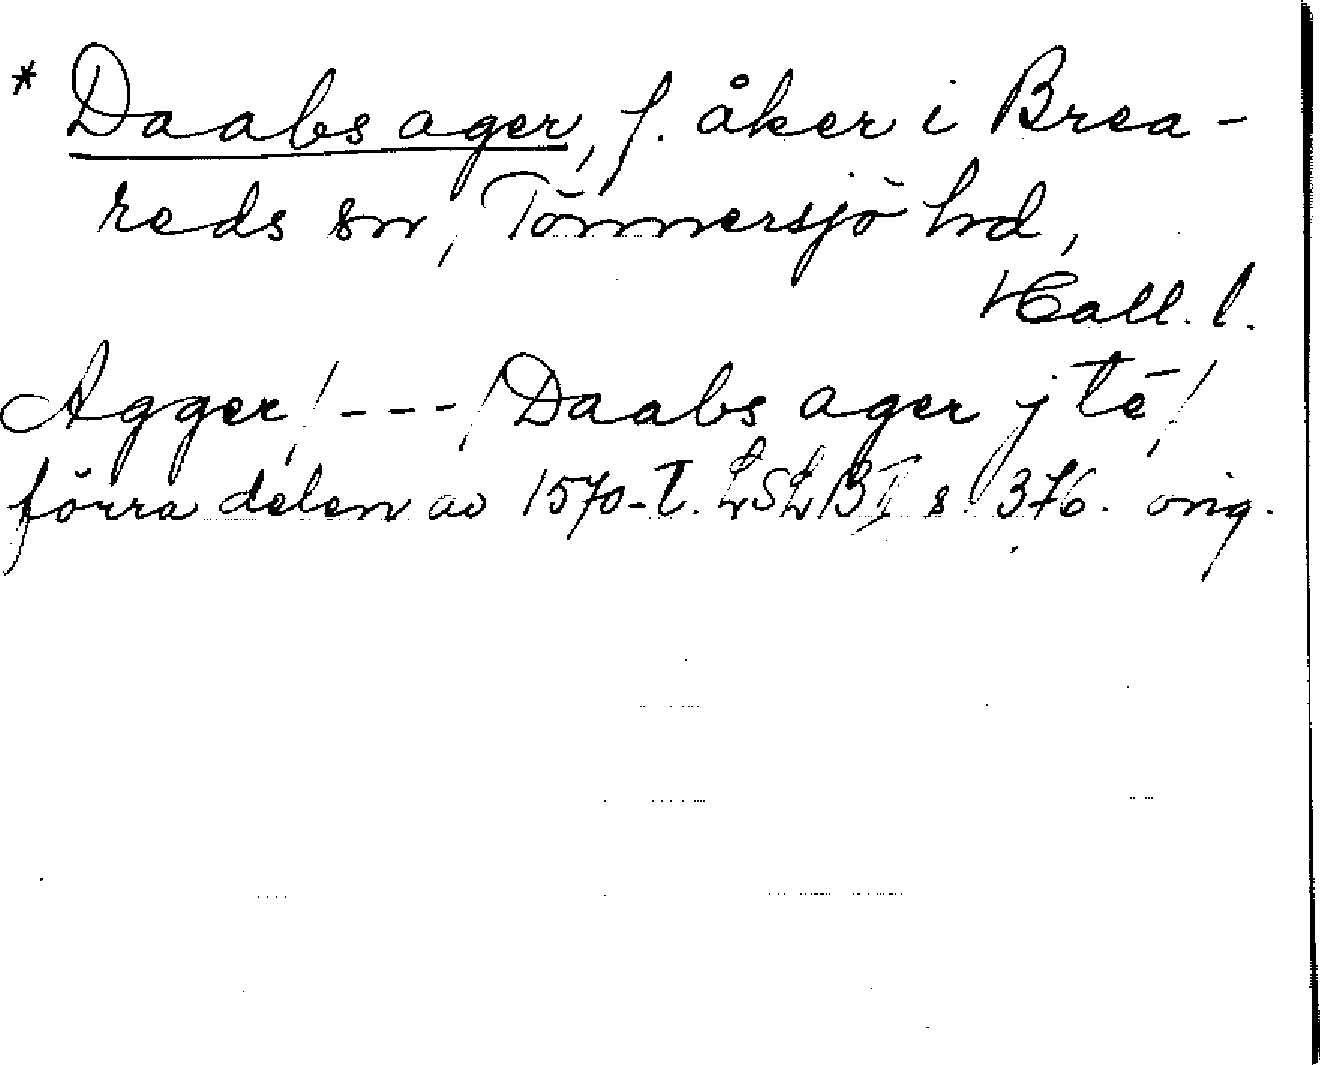 * Daabs ager, f. åker i Brea-
reds sn, Tönnersjö hd,
Hall. l.
Agger / - - - / Daabs ager j tē /
förra delen av 1570-t. LSLB I s. 376. orig.